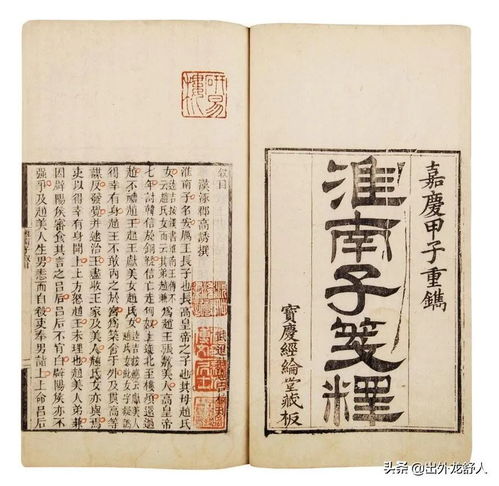 嘉慶甲子重鐫
淮南子箋釋
寶慶經綸堂藏板
研易樓
敘目
漢涿郡高誘撰
淮南子名安厲王長子也長高皇帝之子也其母趙氏
女 為趙王張敖美人高皇帝
七年討韓信於銅鞮信亡走匈奴上遂北至樓煩還過
趙不禮趙王趙王獻美女趙氏女
得幸有身趙王不敢內之於宮為築舍于外及貫高等
謀反發覺并逮治王盡收王家及美人趙氏女亦與焉
吏以得幸有身聞上上方怒趙王未理也趙美人弟兼
因辟陽侯審食其言之呂后呂后不肯白辟陽侯亦不
強爭及趙美人生男恚而自殺吏奉男詣上上命呂后
头条 @出外龙舒人